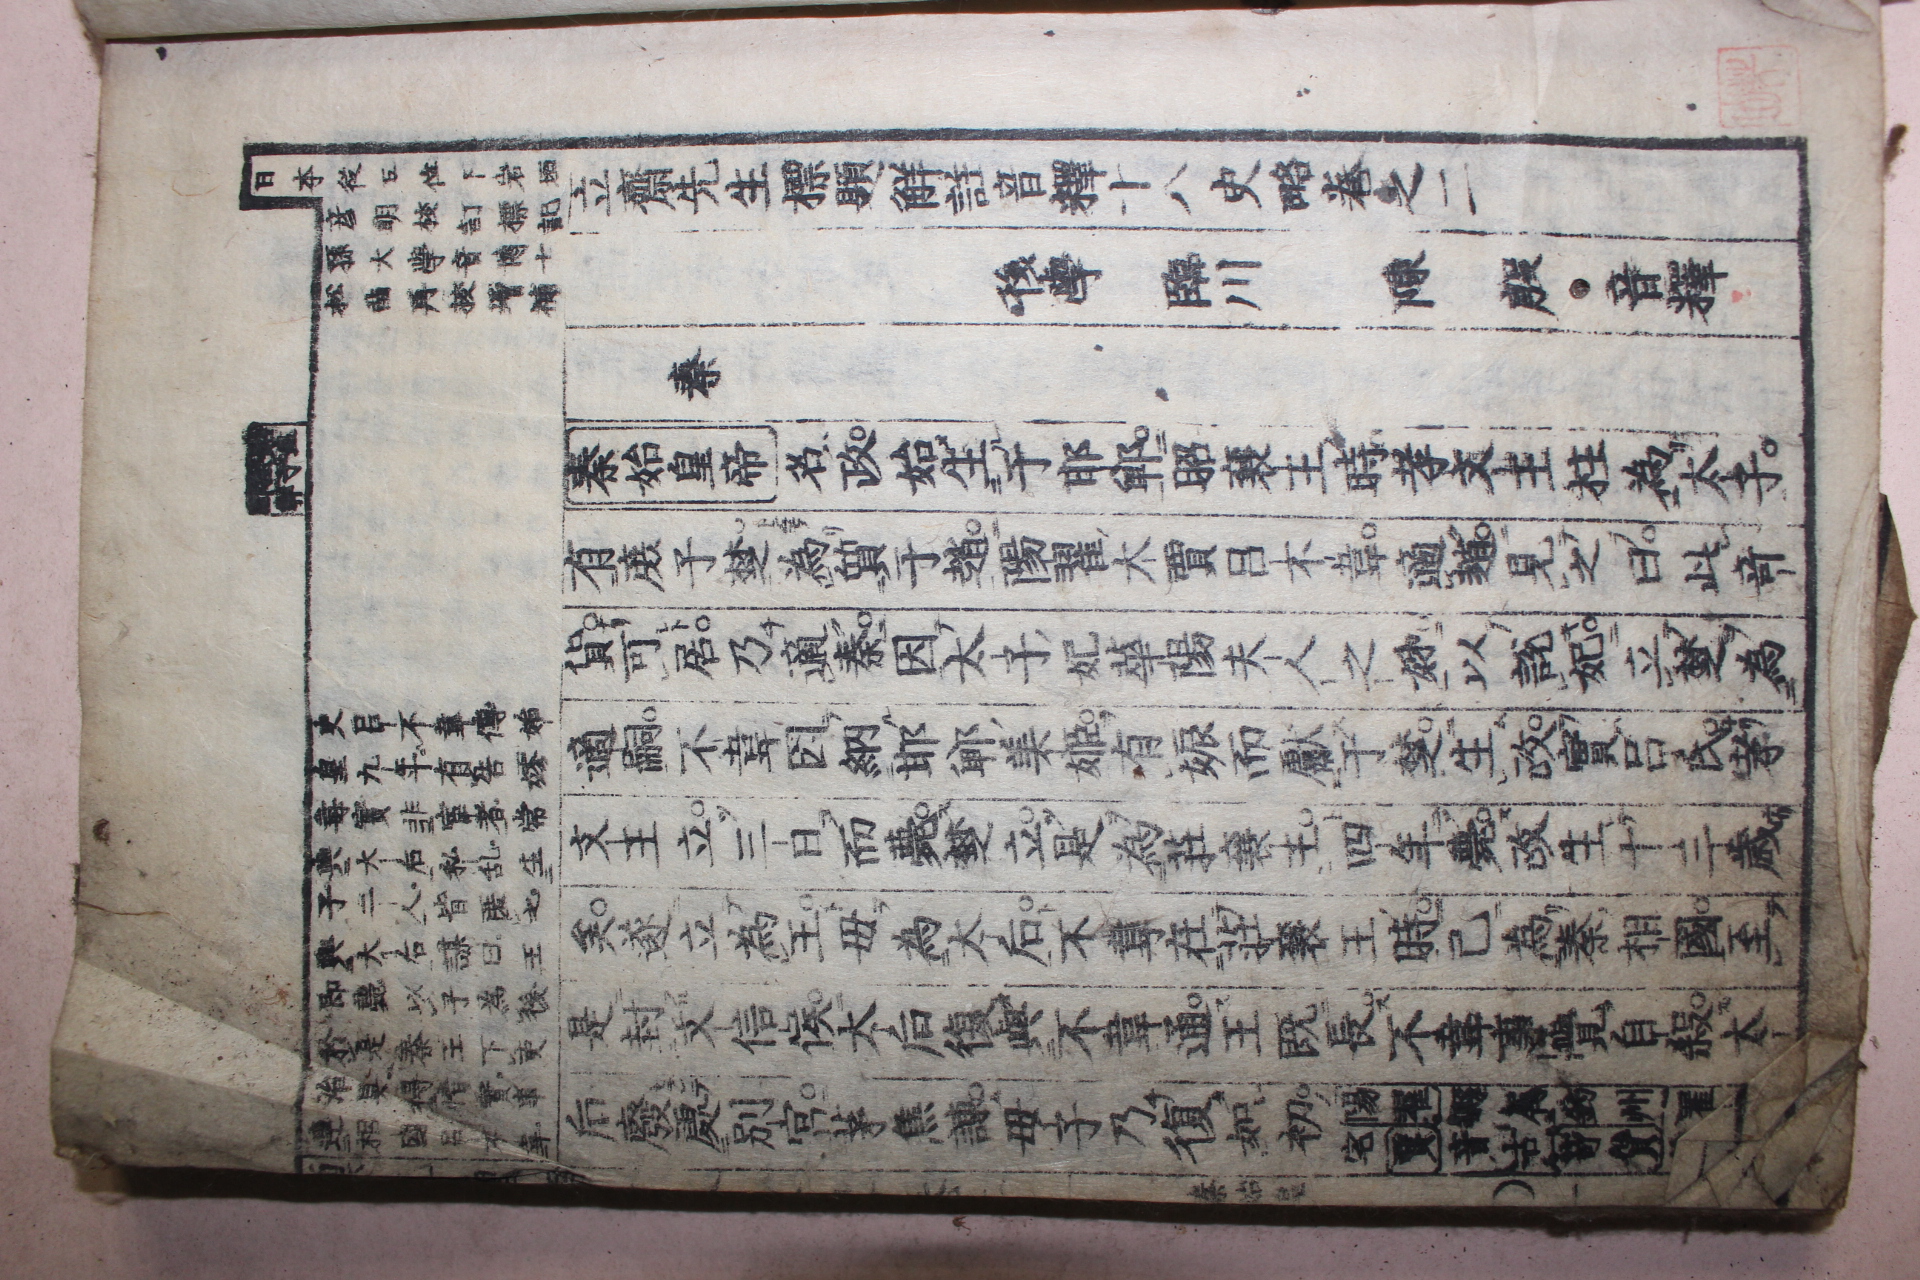 日本從五位下岩垣
彦明校訂標記
孫大學音博士
松苗再校增補
立齋先生標題解註音釋十八史略卷之二
後學 臨川 陳殷 音釋
秦
秦始皇帝名政始生于邯鄲昭襄王時孝文王柱為太子
有庶子楚為質于趙陽翟大賈呂不韋適趙見之曰此奇
貨可居乃適秦因太子妃華陽夫人之姊以說妃立楚為
適嗣不韋因納邯鄲美姬有娠而獻于楚生政實呂氏孝
文王立三日而薨楚立是為莊襄王四年薨政生十三歲
矣遂立為王母為太后不韋在莊襄王時已為秦相國至
是封文信侯太后復與不韋通王既長不韋事覺自殺太
后廢處別宮茅焦諫母子乃復如初
史呂不韋傳始
皇九年有告嫪
毐實非宦者常
與太后私乱生
子二人皆匿之
與太后謀曰王
即薨以子為後
於是秦王下吏
治具得情實事
連相國呂不韋
秦始皇